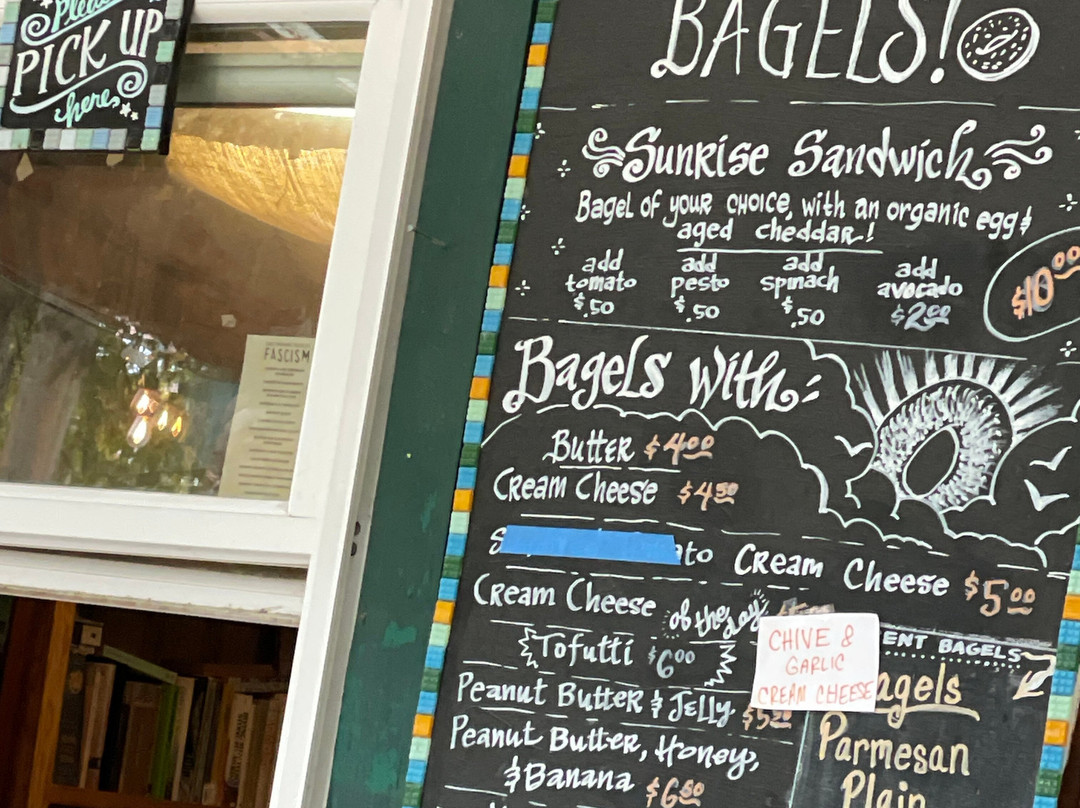 Please
PICK UP
here
FASCISM
BAGELS!
Sunrise Sandwich
Bagel of your choice, with an organic egg &
aged cheddar!
add tomato $.50
add pesto $.50
add spinach $.50
add avocado $2.00
$10.00
Bagels With:
Butter $4.00
Cream Cheese $4.50
S to Cream Cheese $5.00
Cream Cheese of the Day
CHIVE &
GARLIC
CREAM CHEESE
Tofutti $6.00
ENT BAGELS
agels
Peanut Butter & Jelly $5.50
Parmesan
Peanut Butter, Honey,
& Banana $6.50
Plain